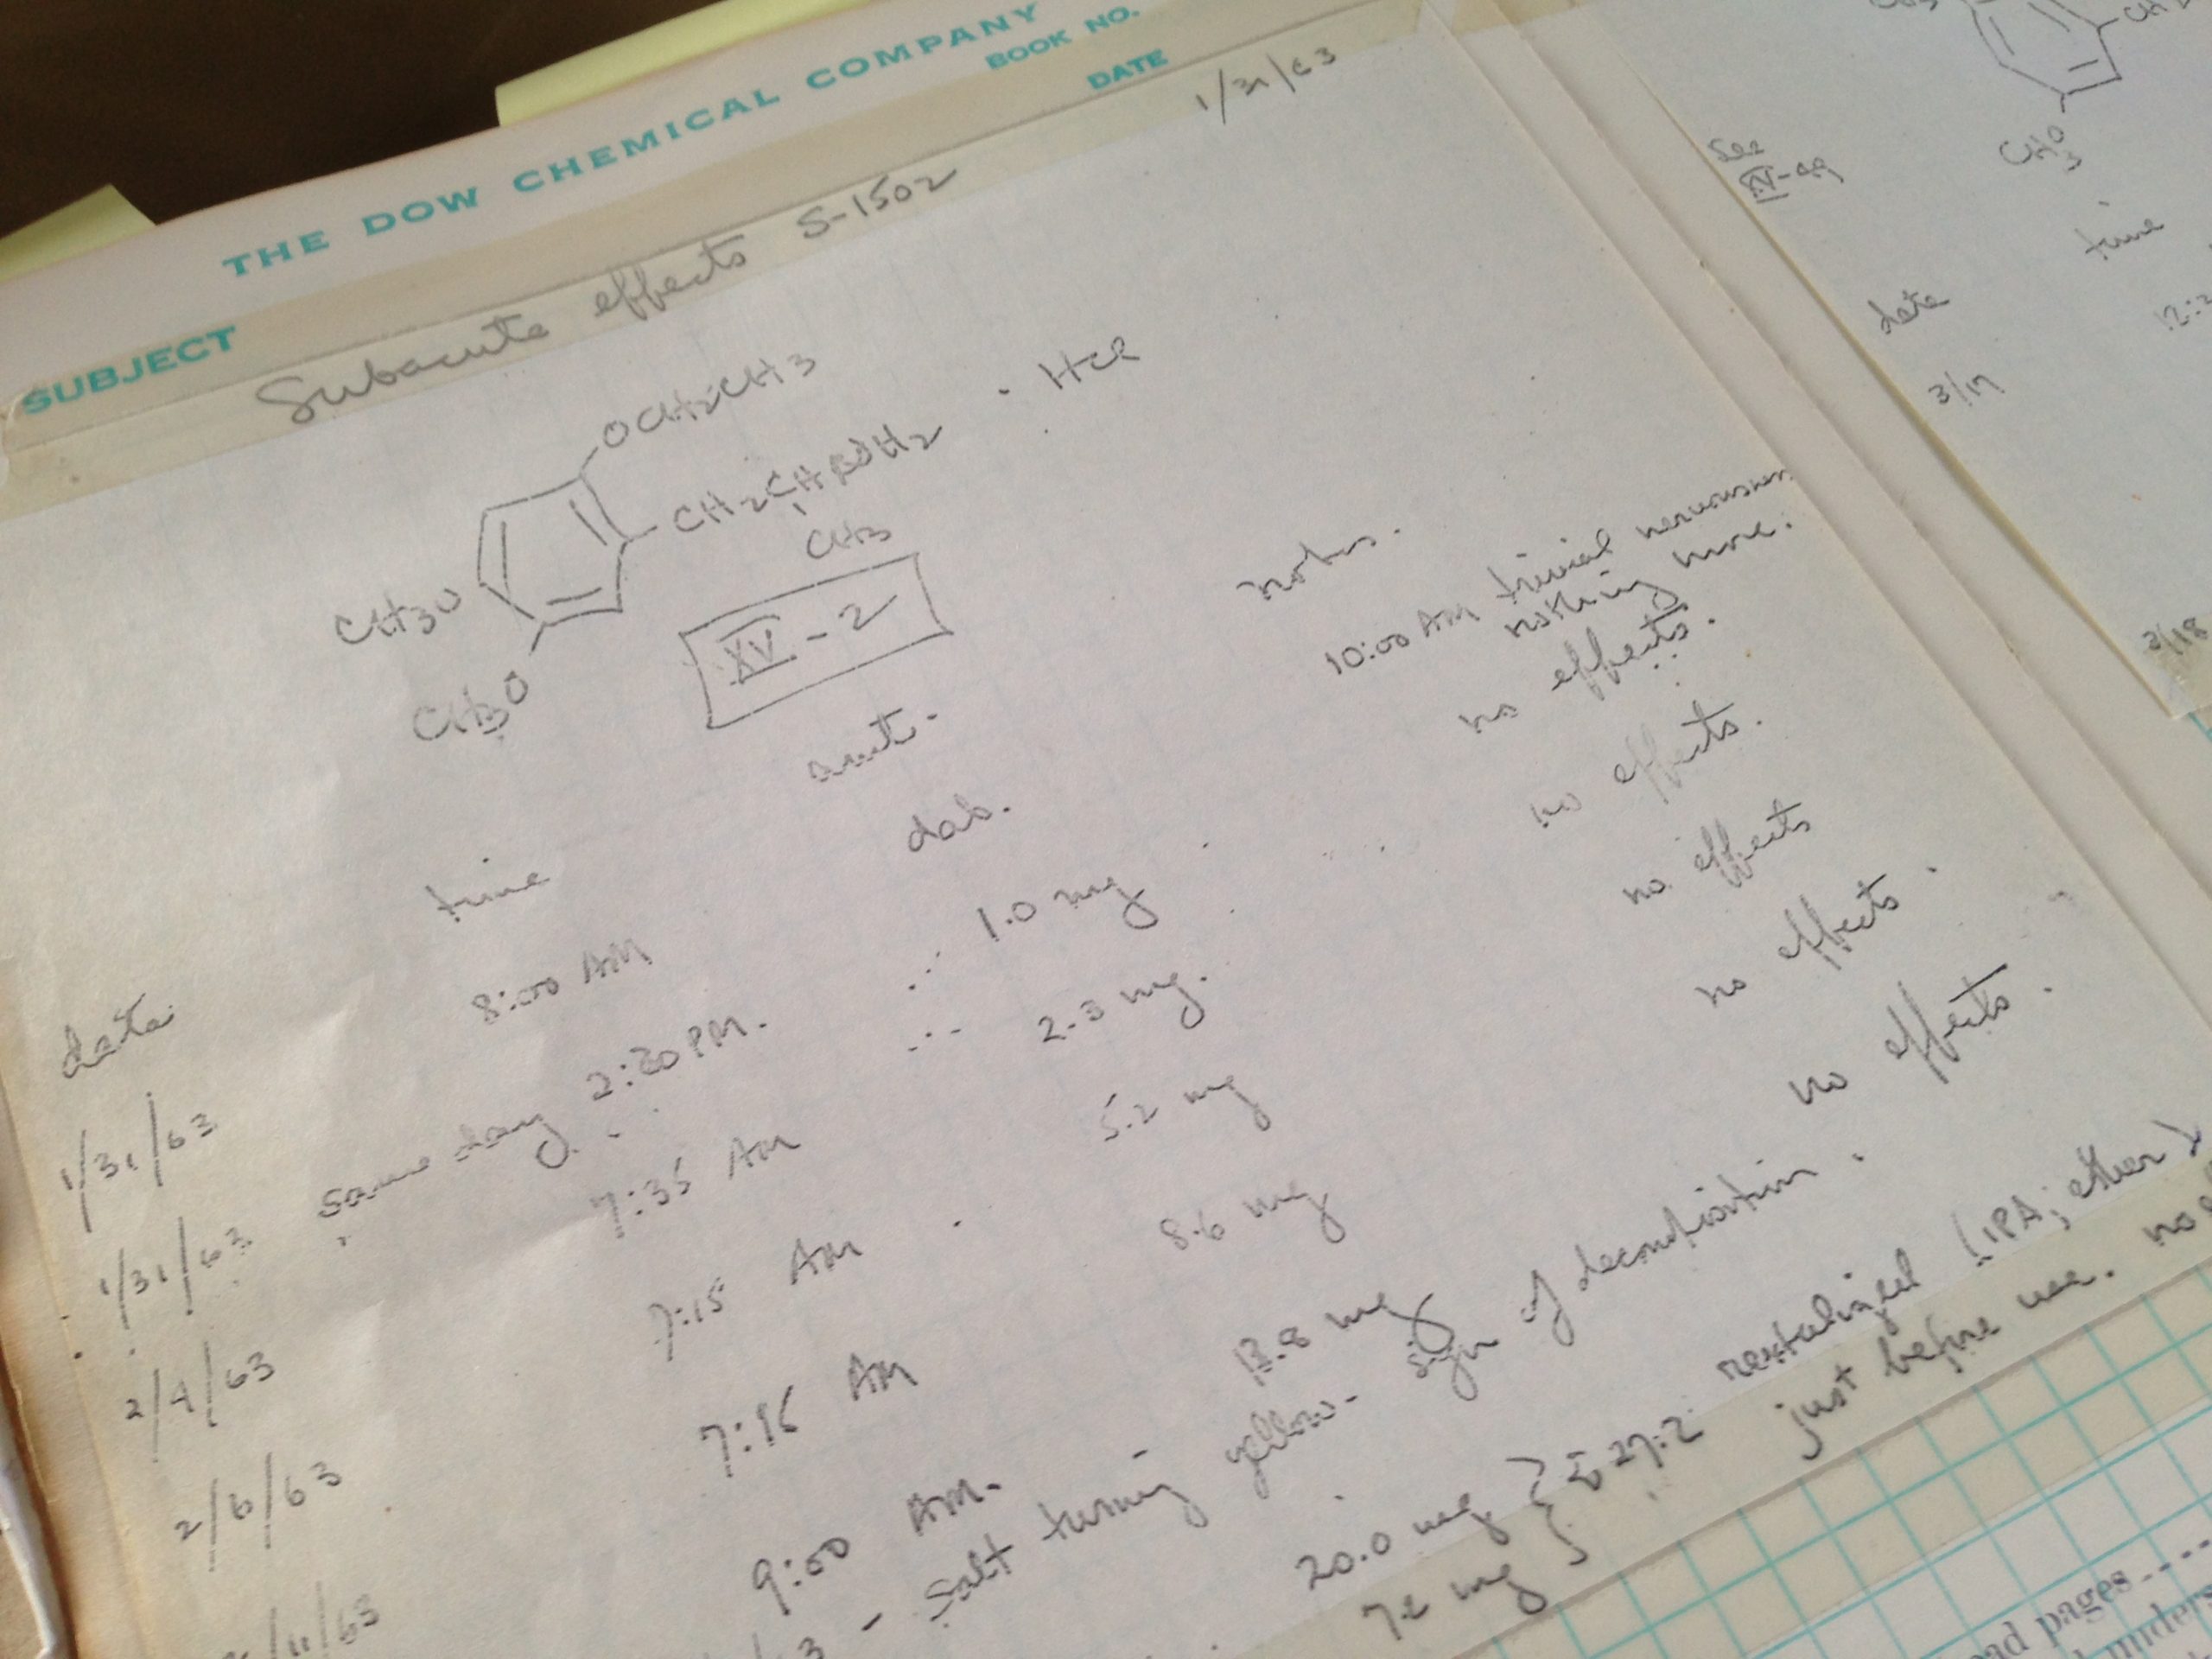 THE DOW CHEMICAL COMPANY
BOOK NO.
SUBJECT
DATE
1/31/63
Subacute effects S-1502
OCH2CH3
CH2CHNH2 · HCl
CH3
CH3O
CH3O
XV-2
date time amt. notes.
dab.
1/31/63 8:00 AM 1.0 mg 10:00 AM trivial nervousness
nothing more.
1/31/63 same day 2:20 PM. 2.3 mg. no effects.
2/4/63 7:35 AM 5.2 mg no effects.
2/6/63 7:15 AM 8.6 mg no effects
/11/63 7:15 AM 13.8 mg no effects.
9:00 AM. 20.0 mg no effects.
3 - salt turning yellow - sign of decomposition.
7.2 mg } Σ 27.2 recrystalized (IPA; ether)
just before use. no
CH3O
See
XV-49
date time
12:2
3/17
3/18
ad pages